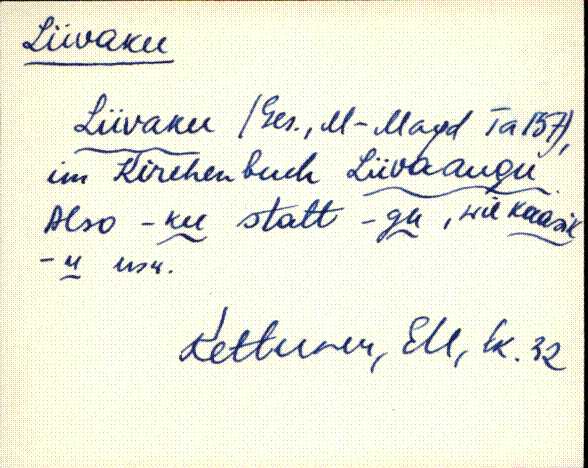 Liivaku
Liivaku (Ges., M-Magd Ta 137),
im Kirchenbuch Liivaaugu.
Also -ku statt -gu, wie kaasik
-u usw.
Kettunen, EM, lk. 32